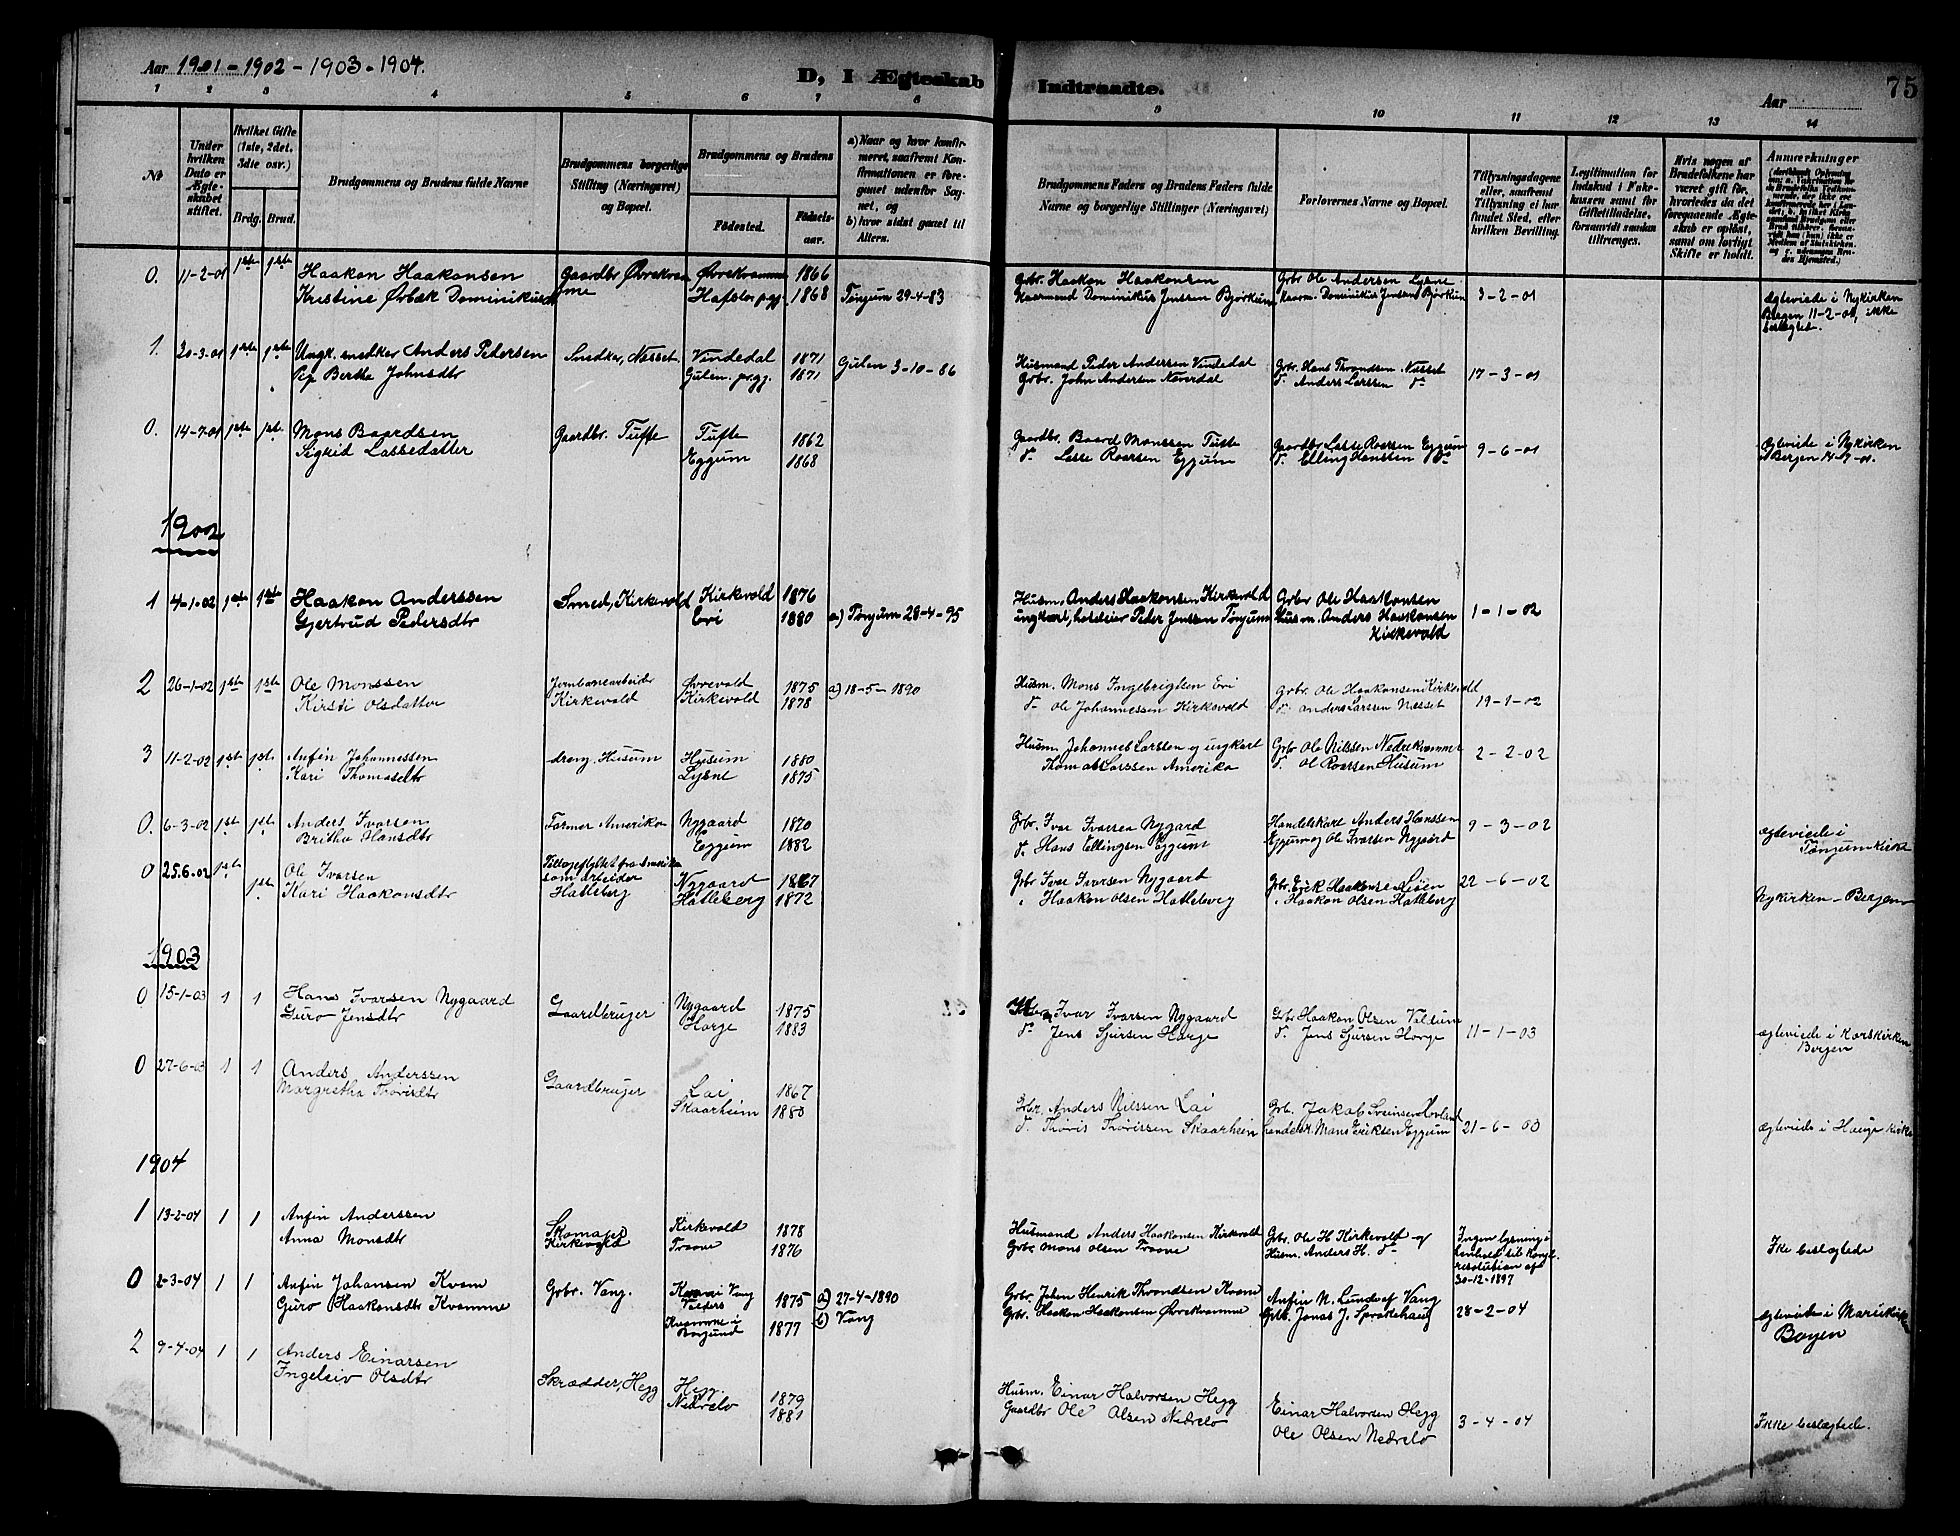 Aar 1901-1902-1903-1904.
D, I Ægteskab Indtraadte.
Aar
75
1 2 3 4 5 6 7 8 9 10 11 12 13 14
No
Under hvilken Dato er Ægteskabet stiftet.
Hvilket Gifte (1ste, 2det, 3die osv.)
Brdg. Brud.
Brudgommens og Brudens fulde Navne
Brudgommens borgerlige Stilling (Næringsvei) og Bopæl.
Brudgommens og Brudens
Fødested.
Fødselsaar.
a) Naar og hvor konfirmeret, saafremt Konfirmationen er foregaaet udenfor Sognet, og
b) hvor sidst gaaet til Alters.
Brudgommens Faders og Brudens Faders fulde Navne og borgerlige Stillinger (Næringsvei)
Forlovernes Navne og Bopæl.
Tillysningsdagene eller, saafremt Tillysning ei har fundet Sted, efter hvilken Bevilling.
Legitimation for Indskud i Enkekassen samt for Giftetilladelse, forsaavidt saadan tiltrænges.
Hvis nogen af Brudefolkene har været gift før, hvorledes da det foregaaende Ægteskab er opløst, samt om lovligt Skifte er holdt.
Anmærkninger
0. 11-2-01 1ste 1ste Haakon Haakonsen Gaardbr Øvrekvamme Øvrekvamme 1866 Grbr. Haakon Haakonsen Grbr Ole Andersen Lysne
Kristine Ørbæk Dominikusd Hafslo pgj. 1868 Tønjum 29-4-83 Kaarmand Dominikus Jenssen Bjørkum Kaarm. Dominikus Jenssen Bjørkum 3-2-01 Ægteviede i Nykirken Bergen 11-2-01, ikke beslægtede.
1. 20-3-01 1ste 1ste Ungk. snedker Anders Pedersen Snedker, Næsset Vindedal 1871 Husmand Peder Andersen Vindedal Grbr. Hans Throndsen Næsset
Pige Bertha Johnsdtr Gulen prgj. 1871 Gulen 3-10-86 Grbr. John Andersen Naverdal d. Anders Larssen d. 17-3-01
0. 14-7-01 1ste 1ste Mons Baardsen Gaardbr. Tufte Tufte 1862 Gaardbr. Baard Monssen Tufte Gaardbr Lasse Roarsen Eggum
Sigrid Lassedatter Eggum 1868 d. Lasse Roarsen Eggum d. Elling Hanssen d. 9-6-01 Ægteviede i Nykirken i Bergen 14-7-01.
1902
1 4-1-02 1ste 1ste Haakon Anderssen Smed, Kirkevold Kirkevold 1876 Husm. Anders Haakonsen Kirkevold Grbr Ole Haakonsen
Gjertrud Pedersdtr Eri 1880 a) Tønjum 28-4-95 ungkarl, hoteleier Peder Jenssen Tønjum Husm. Anders Haakonsen Kirkevold 1-1-02
2 26-1-02 1ste 1ste Ole Monssen Jernbanearbeider Øvrevold 1875 a) 18-5-1890 Husm. Mons Ingebrigtsen Eri Grbr. Ole Haakonsen Kirkevold
Kirsti Olsdatter Kirkevold Kirkevold 1878 d. Ole Johannessen Kirkevold d. Anders Larsen Næsset 19-1-02
3 11-2-02 1ste 1ste Anfin Johannessen dreng, Husum Husum 1880 Husm. Johannes Larssen og ungkarl Grbr Ole Nilssen Nedrekvamme
Kari Thomasdtr Lysne 1875 Thomas Larssen Amerika d. Ole Roarsen Husum 2-2-02
0. 6-3-02 1ste 1ste Anders Ivarsen Farmer Amerika Nygaard 1870 Grbr. Ivar Ivarsen Nygard Handelskarl Anders Hanssen
Britha Hansdtr Eggum 1882 d. Hans Ellingsen Eggum Eggum og Ole Ivarsen Nygaard 9-3-02 ægteviede i Tønjum Kirke
0 25.6-02 1ste 1ste Ole Ivarsen Tilbageflyttet fra Amerika som arbeider Nygaard 1867 Grbr Ivar Ivarsen Nygaard Grbr. Erik Haakonsen Liøen 22-6-02
Kari Haakonsdtr Hatleberg Hatleberg 1872 " Haakon Olsen Hatleberg " Haakon Olsen Hatleberg Nykirken - Bergen
1903
0 15-1-03 1 1 Hans Ivarsen Nygaard Gaardbruger Nygaard 1875 Ivar Ivarsen Nygaard Grbr Haakon Olsen Voldum
Guro Jensdtr Horge 1883 d. Jens Sjursen Horge d. Jens Sjursen Horge 11-1-03 ægteviede i Korskirken Bergen
0 27-6-03 1 1 Anders Anderssen Gaardbruger Lai 1867 Grbr. Anders Nilssen Lai Grb. Jakob Sveinsen Hovland
Margretha Thørisdtr Skaarheim 1880 d. Thøris Thørissen Skaarheim handelsr. Mons Eriksen Eggum 21-6-03 ægteviede i Hauge kirke
1904
1 13-2-04 1 1 Anfin Anderssen Skomager Kirkevold 1878 Husmand Anders Haakonsen Kirkevold Grbr. Ole H. Kirkevold og Ingen lysning i henhold til Kongl. resolution af 30-12-1897
Anna Monsdtr Kirkevold Traave 1876 Grbr. Mons Olsen Traave Husm. Anders H. d. Ikke beslægtede
0 2-3-04 1 1 Anfin Johansen Kvam Grbr. Vang. Kvam i Vang Valders 1875 a) 27-4-1890 Grbr. Johan Henrik Throndsen Kvam Anfin N. Lunde af Vang
Guro Haakonsdtr Kvamme Kvamme i Borgund 1877 b) Vang Grbr. Haakon Haakonsen Øvrekvamme Grb. Jonas J. Sprakehaug 28-2-04 ægteviede i Mariekirke Bergen
2 9-4-04 1 1 Anders Einarsen Skrædder, Hegg Hegg. 1879 Husm. Einar Halvorsen Hegg Einar Halvorsen Hegg
Ingeleiv Olsdtr Nedrelo 1881 Gaardbr Ole Olsen Nedrelo Ole Olsen Nedrelo 3-4-04 Ikke beslægtede.